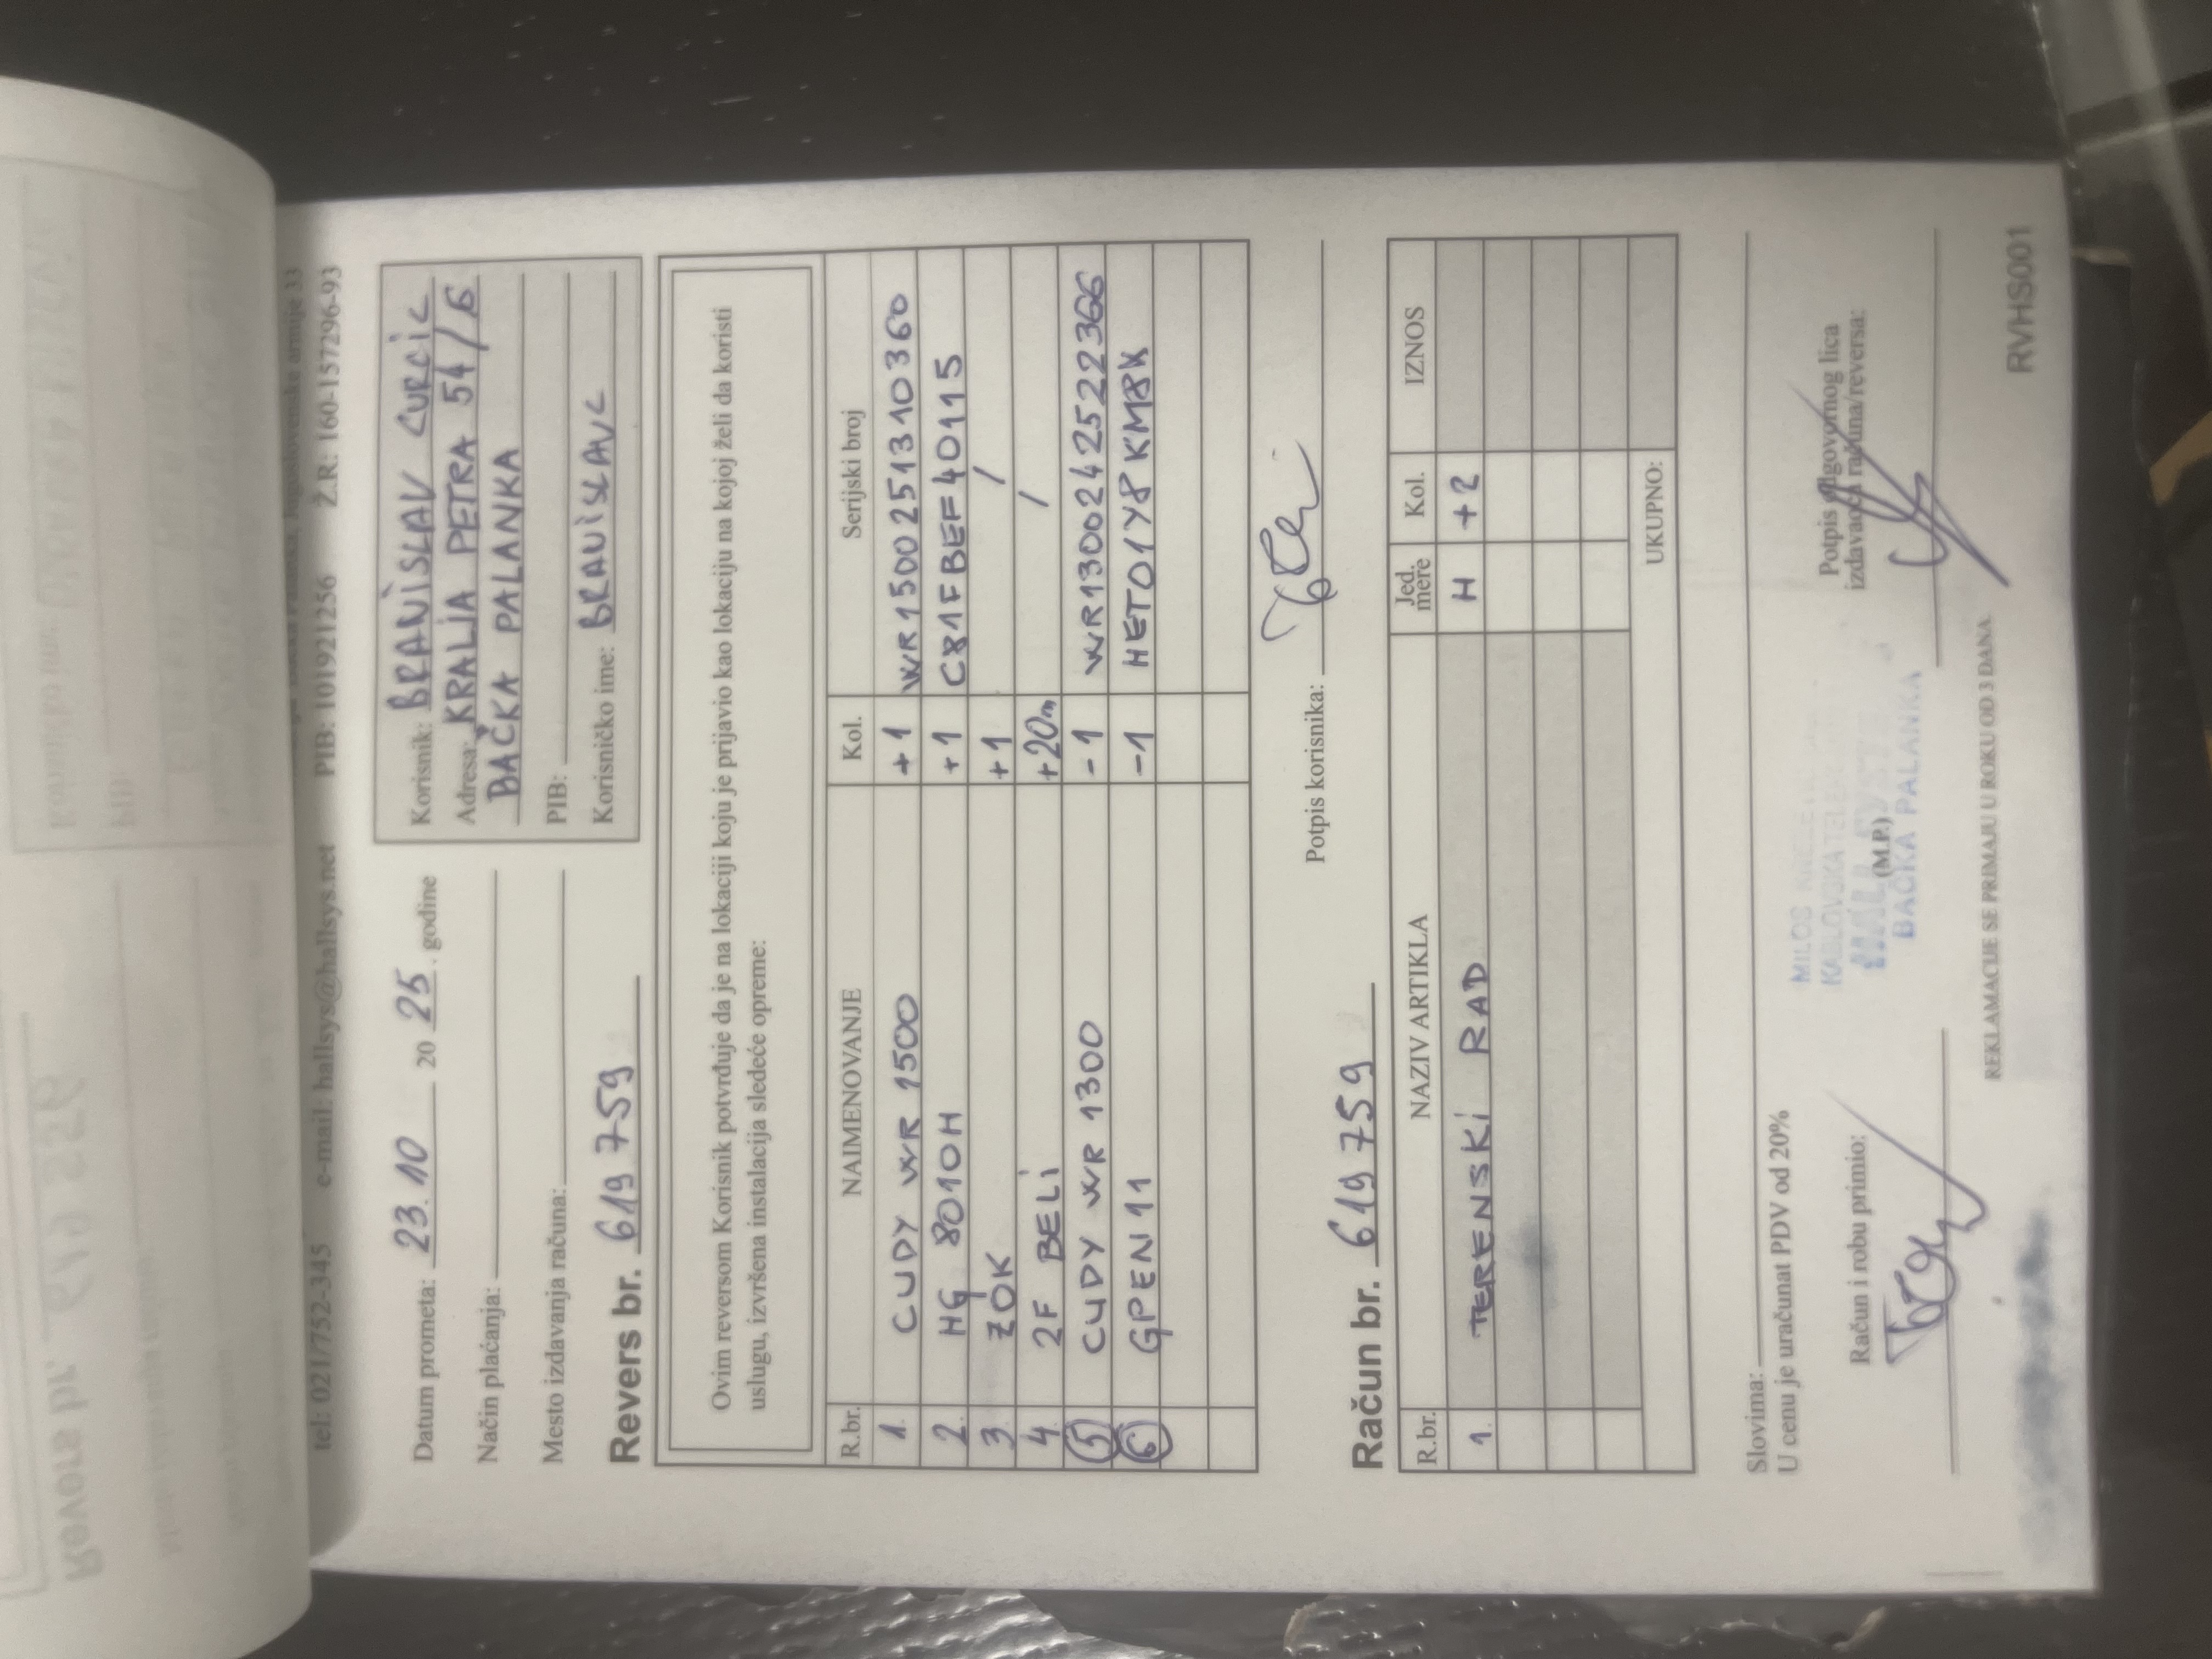 tel: 021/752-345 e-mail: hallsys@hallsys.net PIB: 101921256 Ž.R: 160-157296-93
Datum prometa: 23.10 20 25. godine
Način plaćanja:
Mesto izdavanja računa:
Revers br. 619 759
Korisnik: BRANISLAV CURCIC
Adresa: KRALJA PETRA 54/6
BAČKA PALANKA
PIB:
Korisničko ime: BRANISLAVC
Ovim reversom Korisnik potvrđuje da je na lokaciji koju je prijavio kao lokaciju na kojoj želi da koristi
uslugu, izvršena instalacija sledeće opreme:
R.br. NAIMENOVANJE Kol. Serijski broj
1. CUDY WR 1500 +1 WR1500251310360
2. HG 8010H +1 C81FBEF40115
3. ZOK +1 /
4. 2F BELI +20m /
5 CUDY WR 1300 -1 WR1300242522366
6 GPEN11 -1 HETO1Y8KM8K
Potpis korisnika:
Račun br. 619 759
R.br. NAZIV ARTIKLA Jed. mere Kol. IZNOS
1. TERENSKI RAD H +2
UKUPNO:
Slovima:
U cenu je uračunat PDV od 20%
Račun i robu primio:
(M.P.)
Potpis odgovornog lica
izdavaoca računa/reversa:
MILOS
BAČKA PALANKA
REKLAMACIJE SE PRIMAJU U ROKU OD 3 DANA
RVHS001